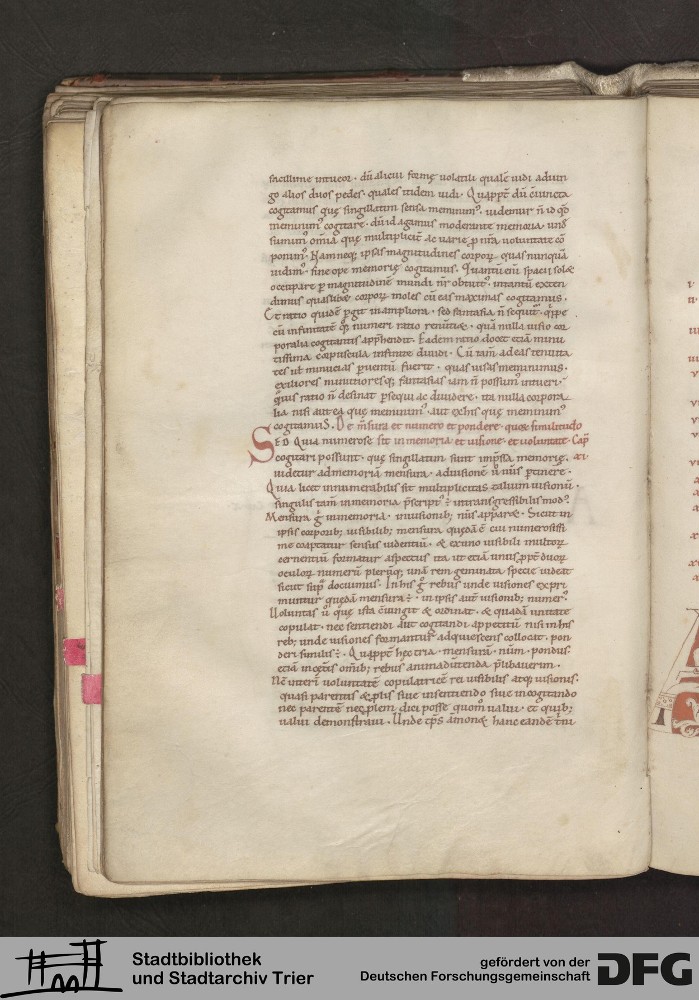 facillime intueor · dū alicui formę volatili qualē uidi adiun
go alios duos pedes · quales itidem uidi · Quapp̄t dū c̄iuncta
cogitamus quę singillatim sensa meminim⁹ · uidemur n̄ id qđ
meminim⁹ cogitare · dū id agamus moderante memoria · und̄
sumim⁹ om̄ia quę multiplicit̄ ac varie p̄ nr̄a voluntate cō
ponim⁹ · Nam neq; ipsas magnitudines corporꝝ quas nunquā
uidim⁹ · sine ope memorię cogitamus · Quantū eni spacij solæ
occupare p̄ magnitudinē mundi nr̄ obtut⁹ · intantū exten
dimus quaslibæ corporꝝ moles cū eas maximas cogitamus ·
Et ratio quidē p̄git in ampliora · sed fantasia n̄ sequit̄ · q̄ppe
cū infinitatē q̨ numeri ratio renuntiæ · quā nulla uisio cor
poralia cogitantis app̄hendit · Eadem ratio docet etiā minu
tissima corpuscula infinite diuidi · Cū tam̄ ad eas tenuita
tes ul̄ minucias p̄uentū fuerit · quas uisas meminimus ·
exiliores minutioresq; fantasias iam n̄ possum⁹ intueri ·
q̄uis ratio n̄ desinat p̄sequi ac diuidere · ita nulla corpora
lia nisi aut ea quę meminim⁹ · aut ex his quę meminim⁹
cogitamus · De m̄sura et numero et pondere · quose similitudo
SED Quia numerose sit in memoria · et uisione · et voluntate · Cap̄
cogitari possunt · quę singillatim sunt imp̄ssa memorię · xi ·
uidetur ad memoriā mensura · ad uisionē ū nūs p̄tinere ·
Quia licet innumerabilis sit multiplicitas talium uisionū ·
singulis tam̄ in memoria p̄script⁹ ÷ intransgressibilis mod⁹ ·
Mensura ḡ in memoria · in uisionib; nūs apparæ · Sicut in
ipsis corporib; uisibilib; mensura quędā ē cui numerosissi
me coaptatur sensus uidentiū · & ex uno uisibili multoꝝ
cernentiū formatur aspectus · ita ut etiā unus p̄p̄t duoꝝ
oculoꝝ numerū plerūq; unā rem geminata specie uideat
sicut sup̄ docuimus · In his ḡ rebus unde uisiones expri
muntur quędā mensura ÷ · in ipsis aut̄ uisionib; numer⁹ ·
Uoluntas ū quę ista c̄iungit & ordinat · & quadā unitate
copulat · nec sentiendi aut cogitandi appetitū nisi in his
reb; unde uisiones formantur adquiescens collocat · pon
deri similis ÷ · Quapp̄t hęc tria · mensurā · num̄ · pondus ·
etiā in cęt̄is om̄ib; rebus animaduertenda p̄libauerim ·
Nc̄ interī voluntatē copulatricē rei uisibilis atq; uisionis ·
quasi parentis & p̄lis siue in sentiendo siue in cogitando
nec parentē nec p̄lem dici posse quom̄ ualui · et quib;
ualui demonstraui · Unde tp̄s ām̄on& hanc eandē t̄ni
Stadtbibliothek
und Stadtarchiv Trier
gefördert von der
Deutschen Forschungsgemeinschaft
DFG